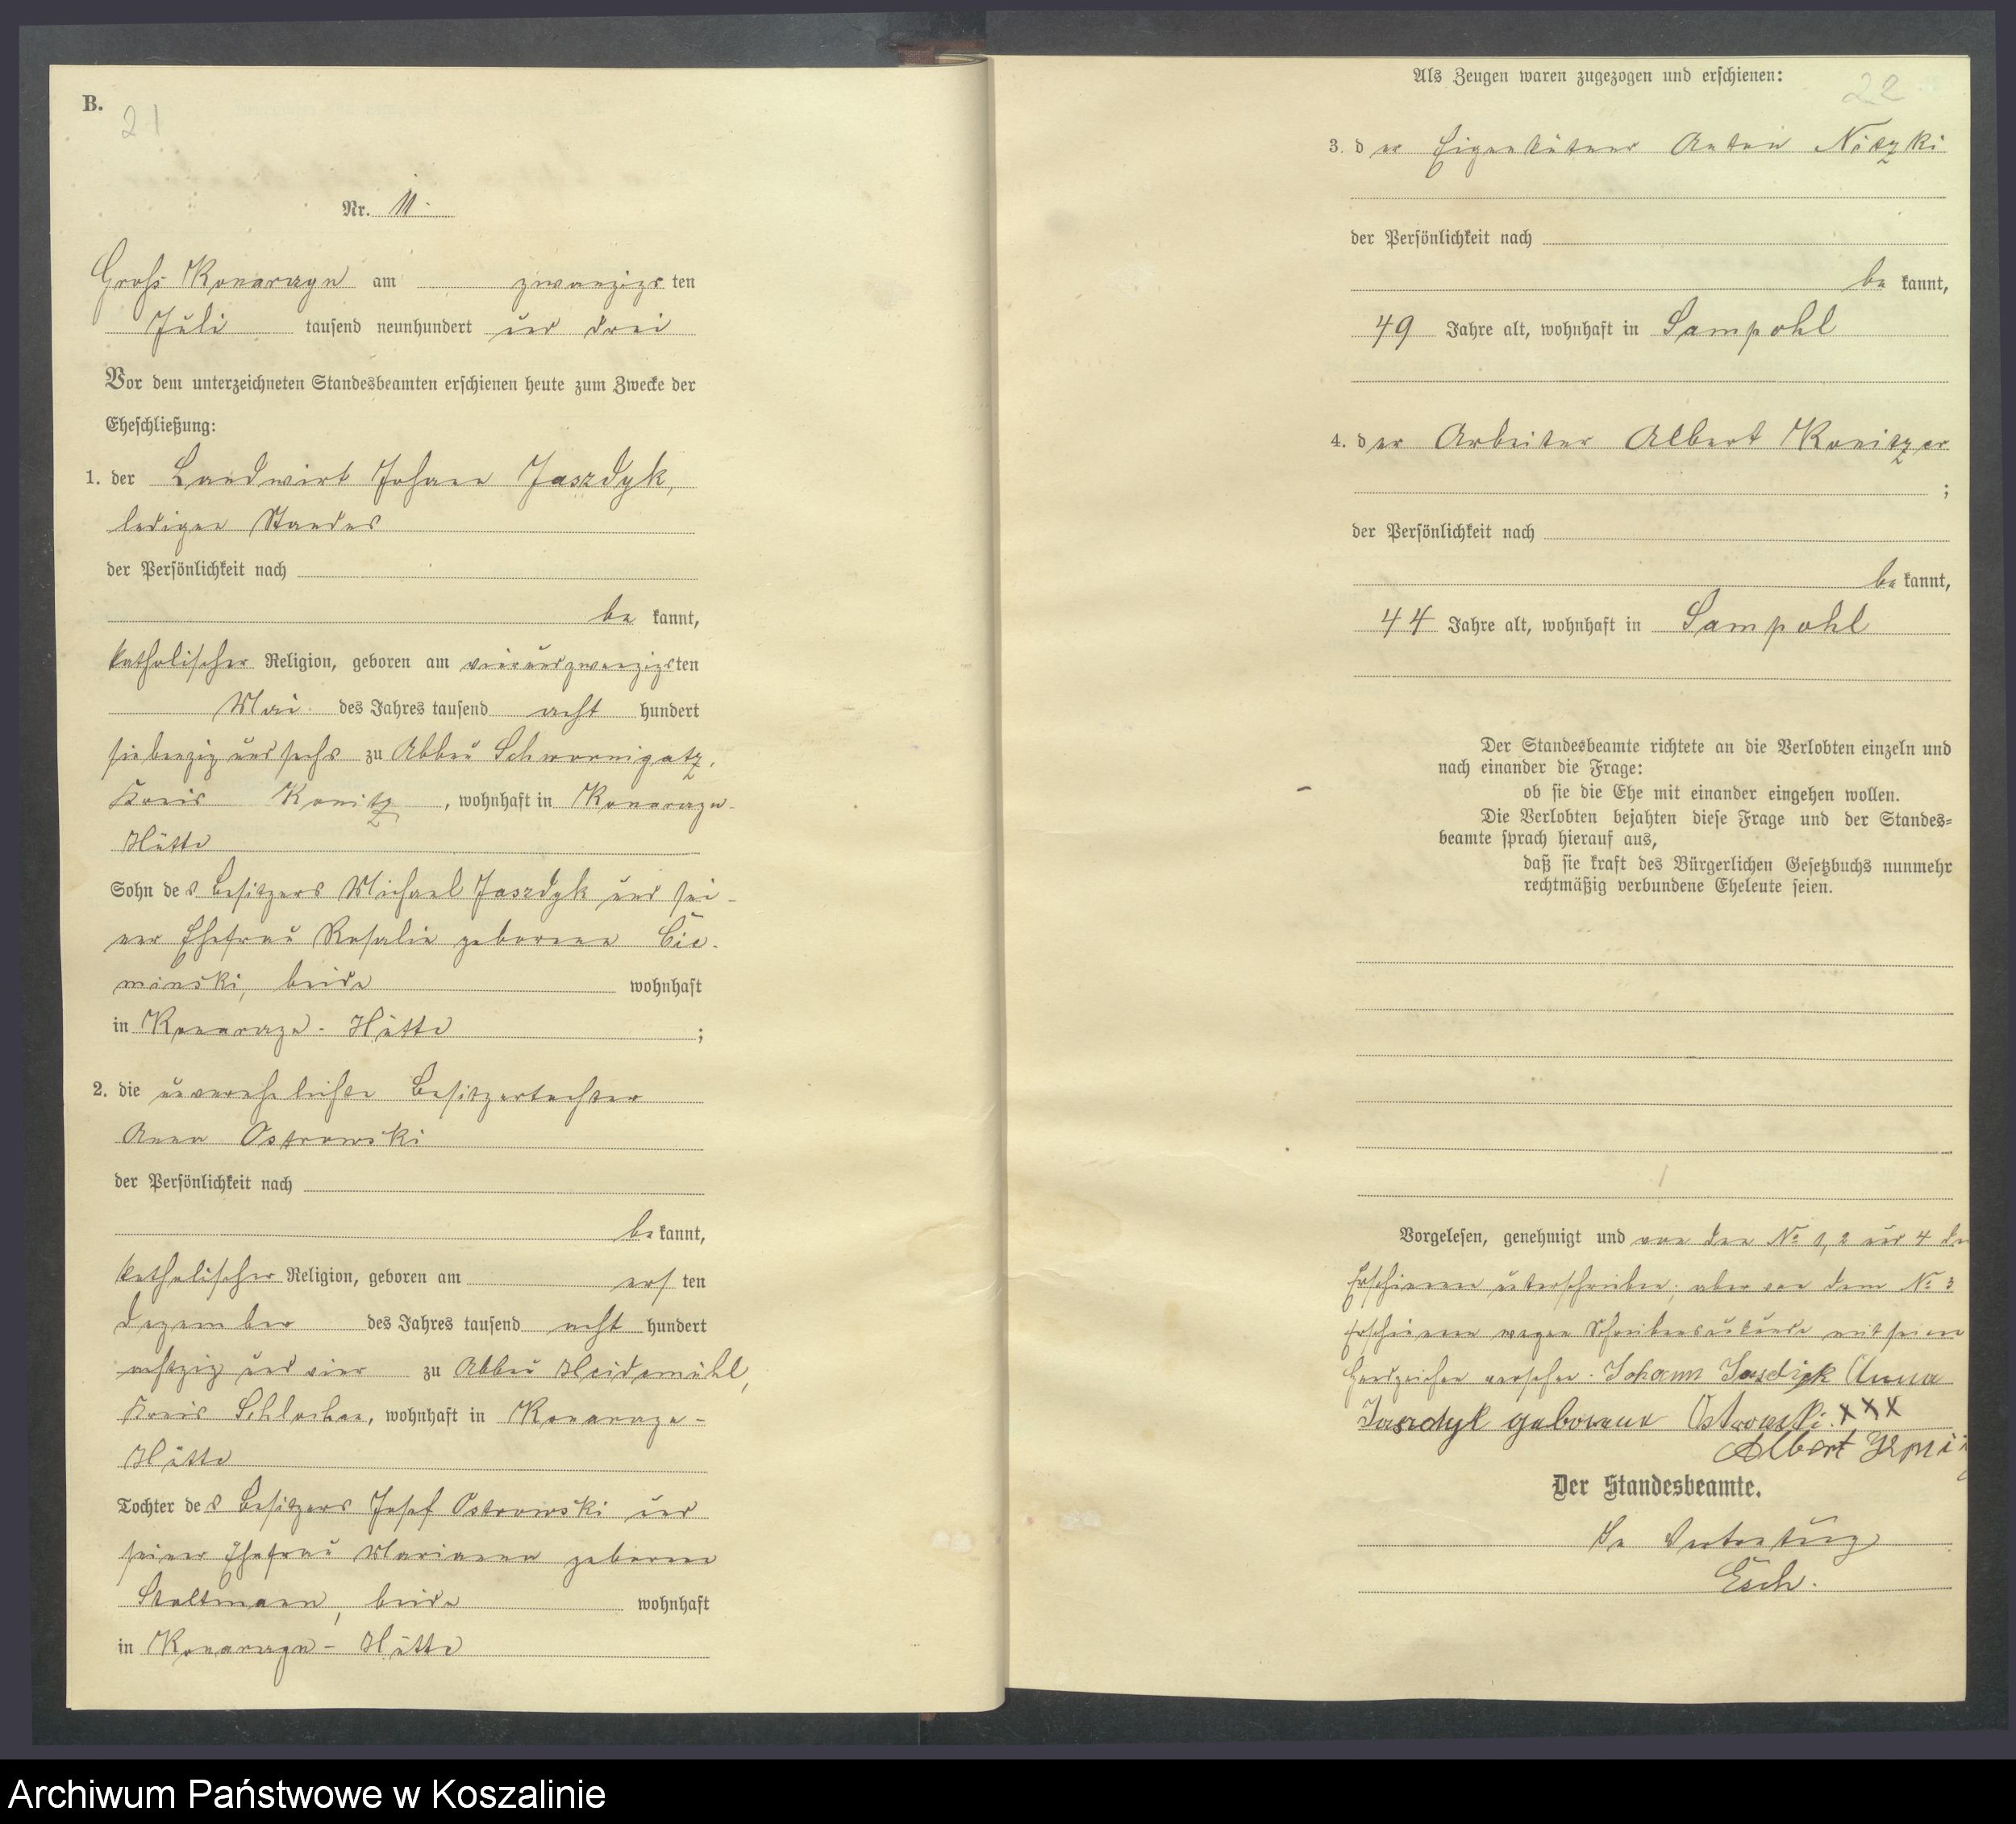 B.
21
Nr. 11.
Gross Konarzyn am zwanzigsten
Juli tausend neunhundert und drei
Vor dem unterzeichneten Standesbeamten erschienen heute zum Zwecke der
Eheschließung:
1. der Landwirt Johann Jaszdyk,
ledigen Standes
der Persönlichkeit nach
be kannt,
katholischer Religion, geboren am vierundzwanzigsten
Mai des Jahres tausend acht hundert
siebenzig und sechs zu Abbau Schwornigatz,
Kreis Konitz, wohnhaft in Konarzyn-
Hütte
Sohn des Besitzers Michael Jaszdyk und sei-
ner Ehefrau Rosalie geborenen Cie-
minski, beide wohnhaft
in Konarzyn-Hütte;
2. die unverehelichte Besitzertochter
Anna Ostrowski
der Persönlichkeit nach
be kannt,
katholischer Religion, geboren am ersten
Dezember des Jahres tausend acht hundert
achtzig und vier zu Abbau Heidemühl,
Kreis Schlochau, wohnhaft in Konarzyn-
Hütte
Tochter des Besitzers Josef Ostrowski und
seiner Ehefrau Marianna geborene
Stoltmann, beide wohnhaft
in Konarzyn-Hütte
Als Zeugen waren zugezogen und erschienen:
22
3. der Eigentümer Anton Nitzki
der Persönlichkeit nach
be kannt,
49 Jahre alt, wohnhaft in Sampohl
4. der Arbeiter Albert Konitzer
;
der Persönlichkeit nach
be kannt,
44 Jahre alt, wohnhaft in Sampohl
Der Standesbeamte richtete an die Verlobten einzeln und
nach einander die Frage:
ob sie die Ehe mit einander eingehen wollen.
Die Verlobten bejahten diese Frage und der Standes=
beamte sprach hierauf aus,
daß sie kraft des Bürgerlichen Gesetzbuchs nunmehr
rechtmäßig verbundene Eheleute seien.
Vorgelesen, genehmigt und von den No 1, 2 und 4
Erschienenen unterschrieben; aber von dem No 3
Erschienenen wegen Schreibensunkunde mit seinem
Handzeichen versehen. Johann Jasdyk Anna
Jaszdyk geborene Ostrowski. XXX
Albert
Der Standesbeamte.
In Vertretung
Esch.
Archiwum Państwowe w Koszalinie